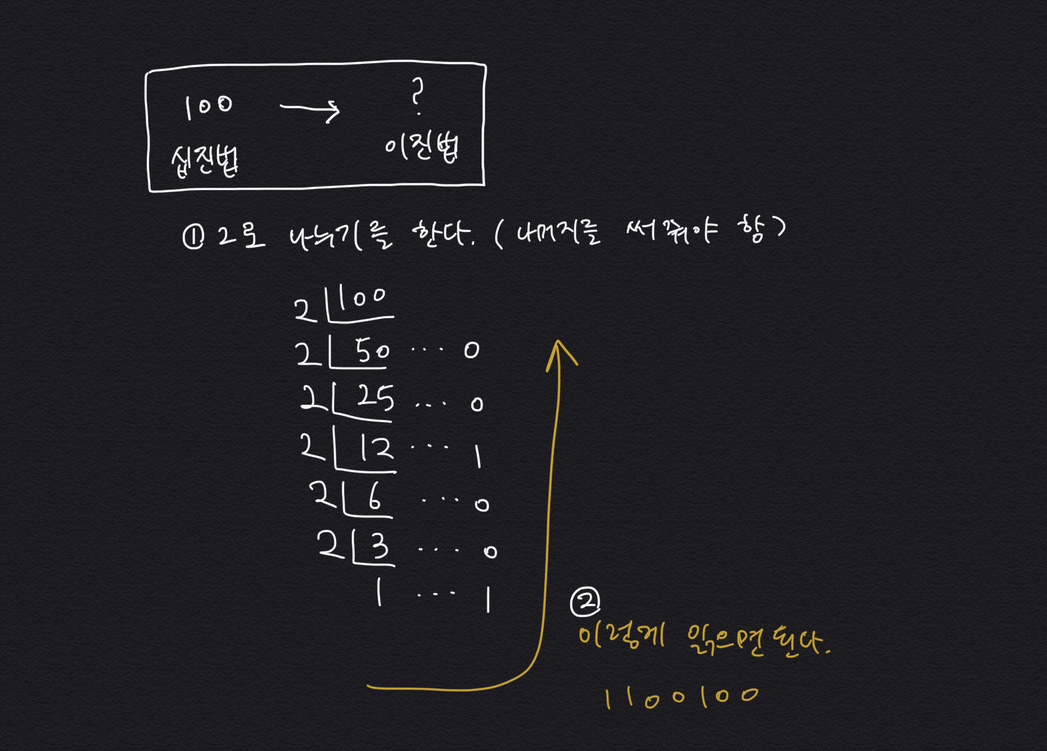 100 → ?
십진법 이진법
① 2로 나누기를 한다. (나머지를 써 줘야 함)
2 100
2 50 ... 0
2 25 ... 0
2 12 ... 1
2 6 ... 0
2 3 ... 0
1 ... 1
②
이렇게 읽으면 된다.
1100100